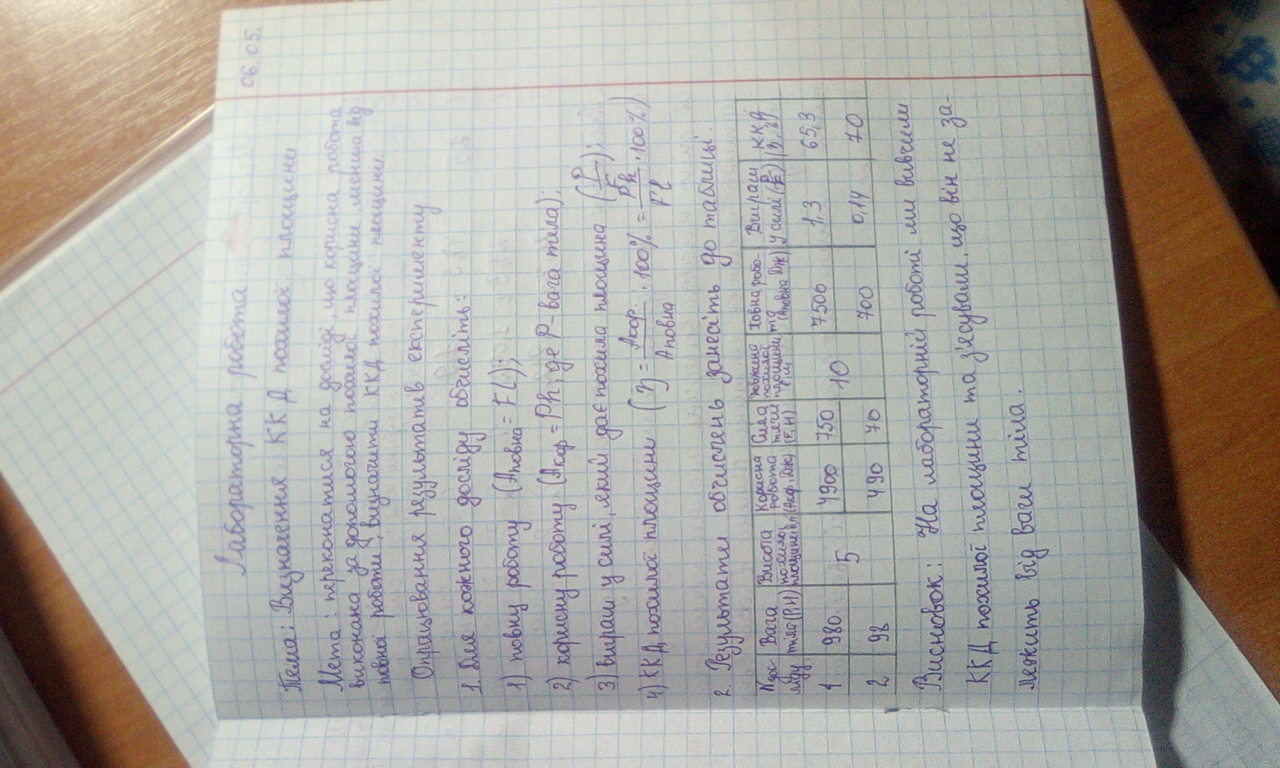 06.05.
Лабораторна робота
Тема: Визначення ККД похилої площини
Мета: переконатися на досліді, що корисна робота
виконана за допомогою похилої площини менша від
повної роботи; визначити ККД похилої площини.
Опрацювання результатів експерименту
1. Для кожного досліду обчисліть:
1) повну роботу (Aповна = Fl);
2) корисну роботу (Aкор = Ph, де P - вага тіла);
3) виграш у силі, який дає похила площина (P/F);
4) ККД похилої площини (η = Aкор/Aповна · 100% = Ph/Fl · 100%)
2. Результати обчислень занесіть до таблиці.
Вага тіла (P, Н) Висота похилої площини Корисна робота (Aкор, Дж) Сила тяги (F, Н) Довжина похилої площини Повна робота (Aповна Дж) Виграш у силі (P/F) ККД (η, %)
1 980 5 4900 750 10 7500 1,3 65,3
2 98 490 70 700 0,14 70
Висновок: На лабораторній роботі ми вивчили
ККД похилої площини та з'ясували, що він не за-
лежить від ваги тіла.